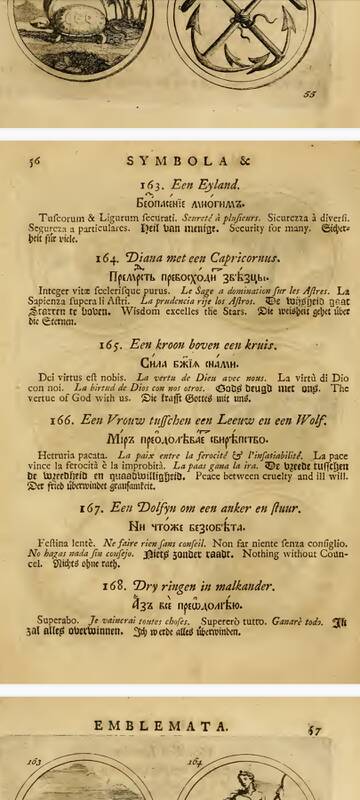 55
56 SYMBOLA &
163. Een Eyland.
Безопасенїе многимъ.
Tuscorum & Ligurum securati. Seureté à plusieurs. Sicurezza à diversi.
Segureza a particulares. Heil van menige. Security for many. Sicher-
heit für viele.
164. Diana met een Capricornus.
Премрⷭ҇ть превосходи звѣзды.
Integer vitæ scelerisque purus. Le Sage a domination sur les Astres. La
Sapienza supera li Astri. La prudencia rije los Astros. De wijsheid gaat
Starren te boven. Wisdom excelles the Stars. Die weisheit gehet über
die Sternen.
165. Een kroon boven een kruis.
Сила бж҃їѧ снами.
Dei virtus est nobis. La vertu de Dieu avec nous. La virtù di Dio
con noi. La birtud de Dios con nos otros. Gods deugd met ons. The
vertue of God with us. Die krafft Gottes mit uns.
166. Een Vrouw tusschen een Leeuw en een Wolf.
Мїръ преѡдолѣвае свирѣпство.
Hetruria pacata. La paix entre la ferocité & l'insatiabilité. La pace
vince la ferocità è la improbità. La paas gana la ira. De vreede tusschen
de wreedheid en quaadwilligheid. Peace between cruelty and ill will.
Der fried überwindet grausamkeit.
167. Een Dolfyn om een anker en stuur.
Ни чтоже безсовѣта.
Festina lentè. Ne faire rien sans conseil. Non far niente senza consiglio.
No hagas nada sin consejo. Niets zonder raadt. Nothing without Coun-
cel. Nichts ohne rath.
168. Dry ringen in malkander.
Азъ всѐ преѡдолгѣю.
Superabo. Je vainerai toutes choses. Supererò tutto. Ganarè todo. Ik
zal alles overwinnen. Ich werde alles überwinden.
EMBLEMATA. 57
163 164